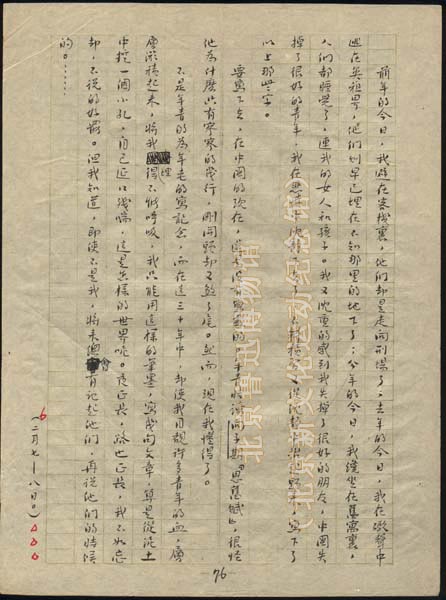 前年的今日，我避在客栈裏，他们却是走向刑場了；去年的今日，我在砲聲中
逃在英租界，他们則早已埋在不知那里的地下了；今年的今日，我纔坐在舊寓裏，
人们都睡覺了，連我的女人和孩子。我又沈重的感到我失掉了很好的朋友，中國失
掉了很好的青年，我在悲憤中沈静下去了，不料積習又從沈静中抬起頭來，寫下了
以上那些字。
要寫下去，在中國的現在，還是没有寫處的。年青時讀向子期《思舊賦》，很怪
他為什麽只有寥寥的幾行，剛開頭却又煞了尾。然而，現在我懂得了。
不是年青的為年老的寫記念，而在這三十年中，却使我目睹許多青年的血，層
層淤積起來，將我埋得不能呼吸，我只能用這樣的筆墨，寫幾句文章，算是從泥土
中挖一個小孔，自己延口残喘，這是怎樣的世界呢。夜正長，路也正長，我不如忘
却，不説的好罷。但我知道，即使不是我，將來總會有記起他们，再説他们的時候
的。……
（二月七—八日。）
76
北京鲁迅博物馆
（北京新文化运动纪念馆）